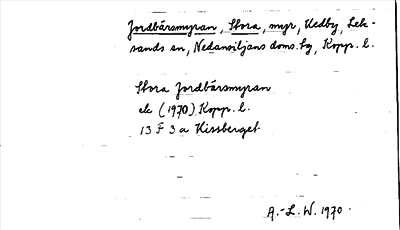 Jordbärsmyran, Stora, myr, Hedby, Lek-
sands sn, Nedansiljans doms.tg, Kopp. l.
Stora Jordbärsmyran
ek (1970) Kopp. l.
13 F 3 a Hissberget
A.-L. W. 1970.